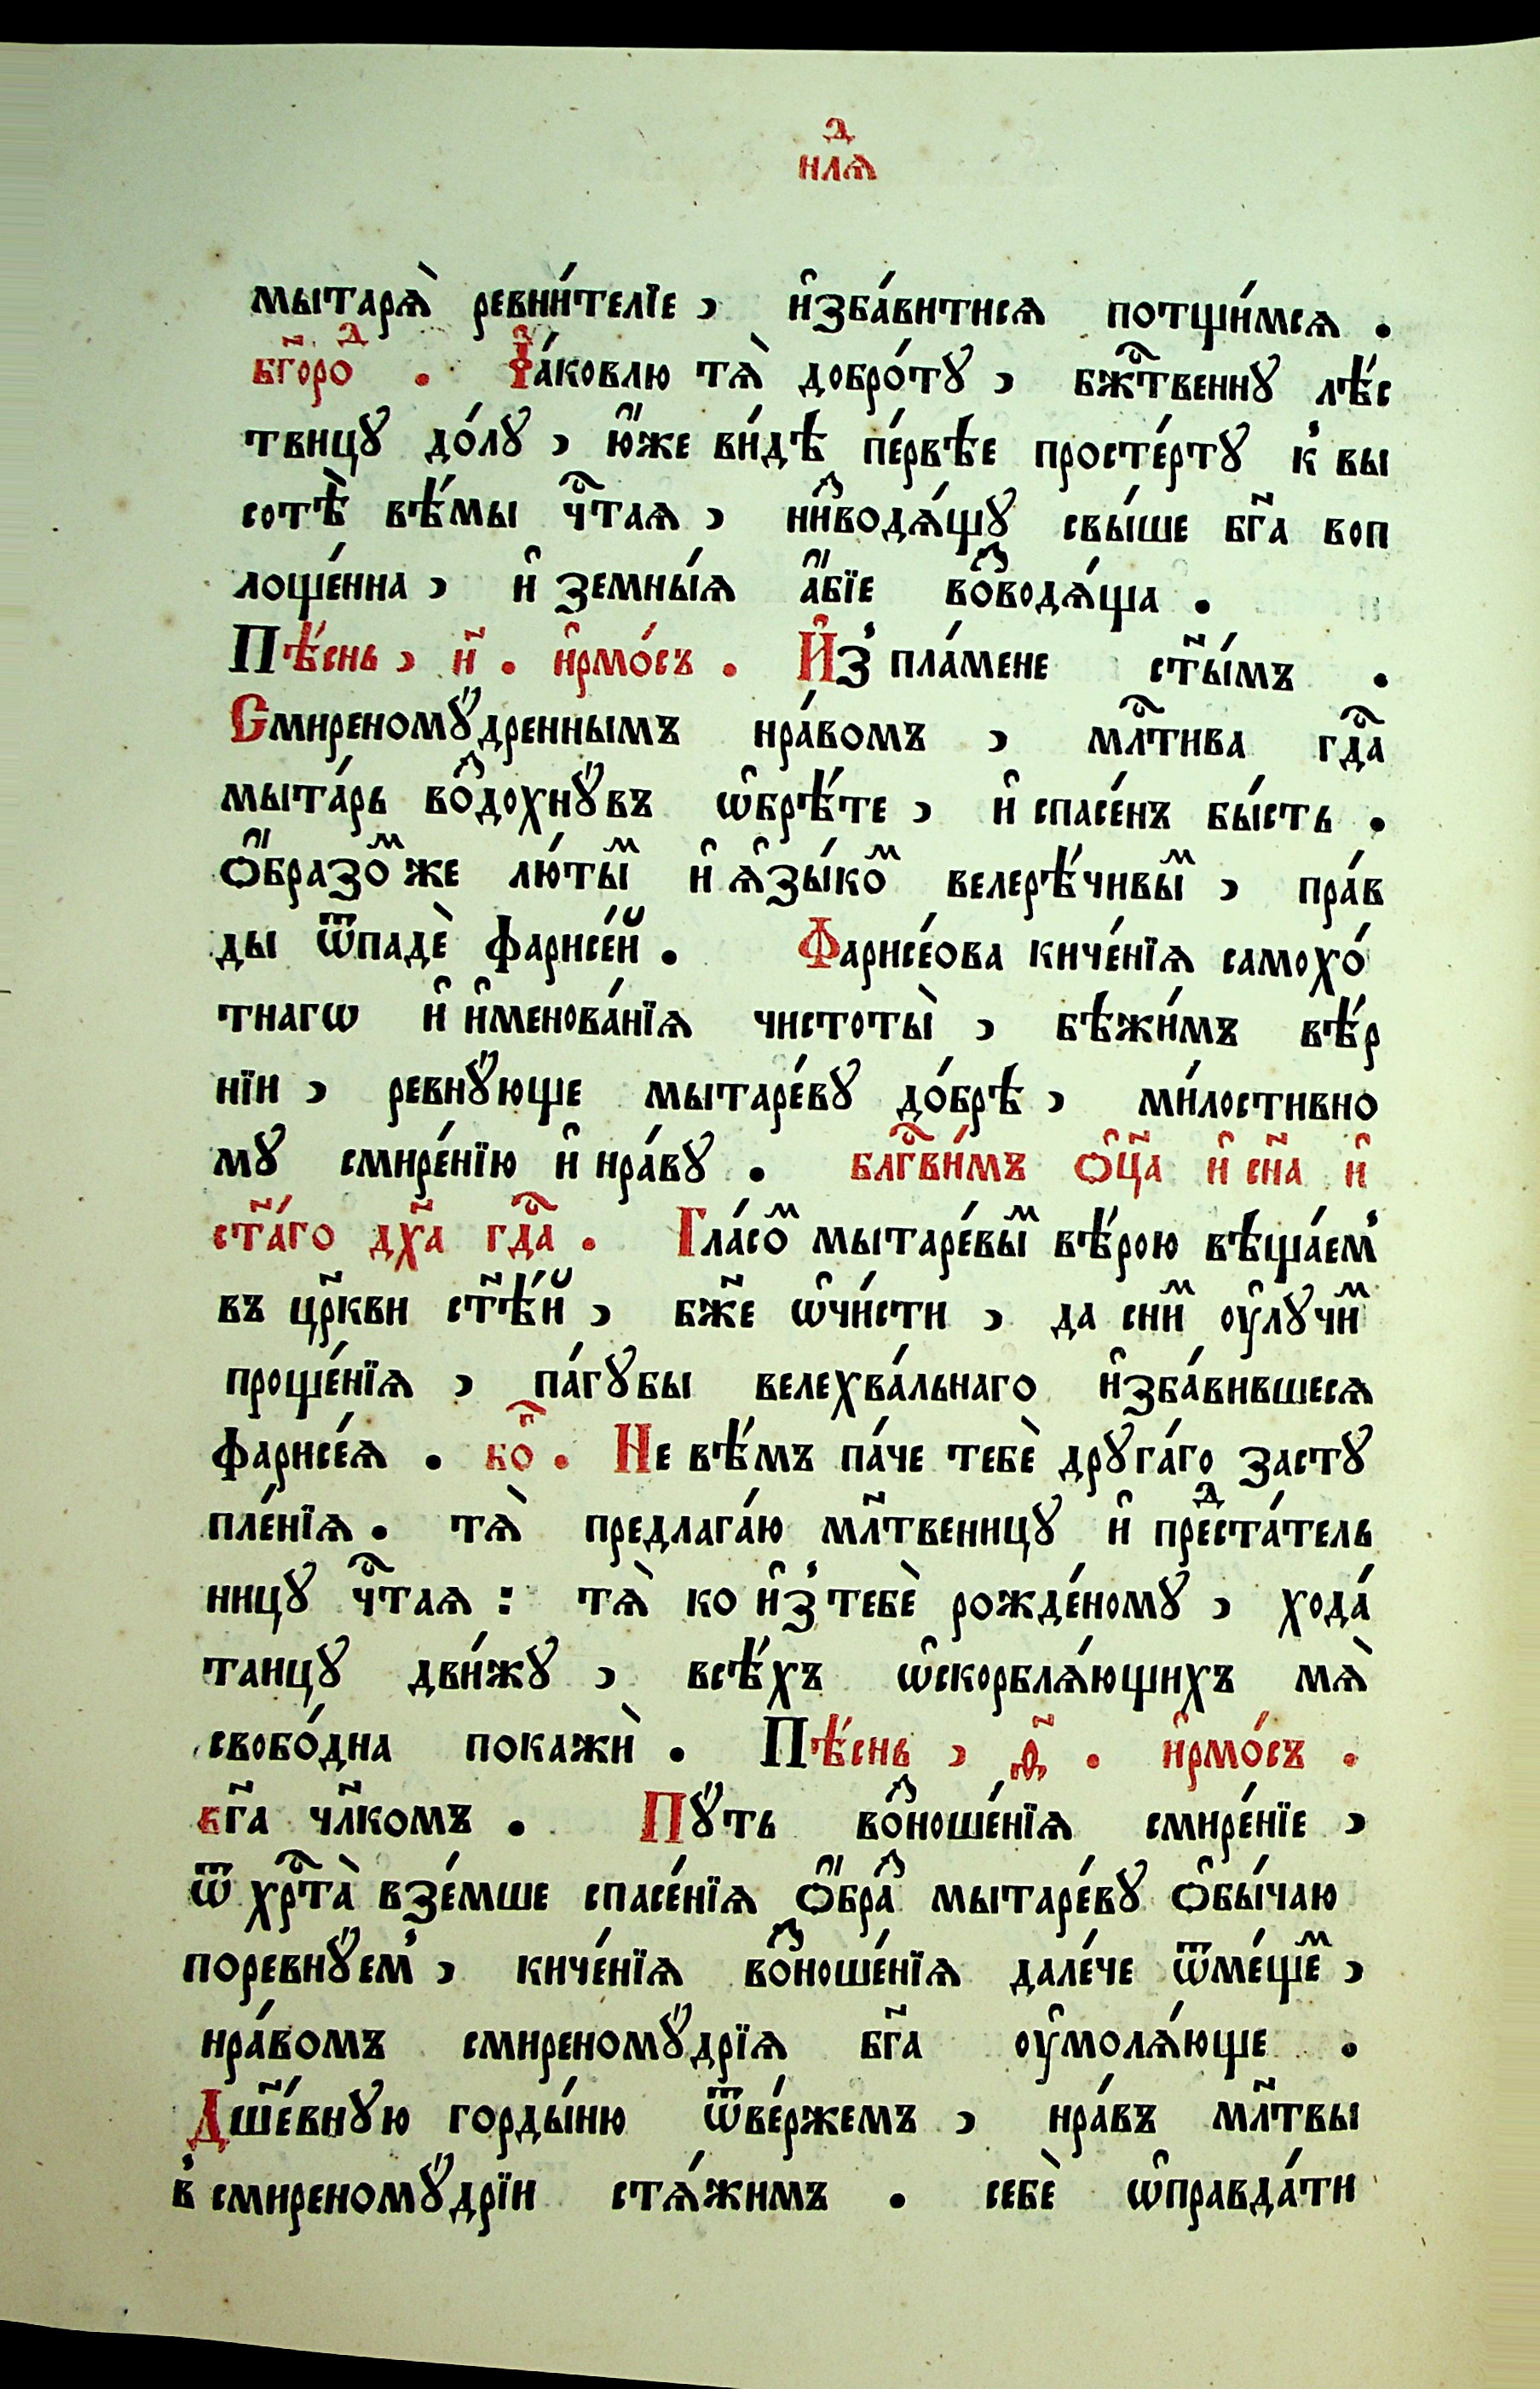 нлѧⷣ
мытарѧ̀ ревни́телїе , и҆зба́витисѧ потщи́мсѧ .
бг҃оро́ⷣ . І҆а́ковлю тѧ̀ добро́тꙋ , бжⷭ҇твеннꙋ лѣ́с
твицꙋ до́лꙋ , ю҆́же ви́дѣ пе́рвѣе просте́ртꙋ к̾ вы
сотѣ̀ вѣ́мы чⷭ҇таѧ , ни́зⷥводѧ́щꙋ свы́ше бг҃а воп
лоще́нна , и҆ земны́ѧ а҆́бїе во́ⷥводѧ́ща .
Пѣ́снь , и҃ . и҆рмо́съ . И҆з̾ пла́мене ст҃ы́мъ .
Смиреномꙋ́дреннымъ нра́вомъ , млⷭ҇тива гдⷭ҇а
мыта́рь воⷥдохнꙋ́въ ѡ҆брѣ́те , и҆ спасе́нъ бы́сть .
Ѻ҆́бразоⷨ же лю́тыⷨ и҆ ѧ҆зы́коⷨ велерѣ́чивыⷨ , пра́в
ды ѿпадѐ фарисе́й . Фарисе́ова киче́нїѧ самохо́
тнагѡ и҆ и҆менова́нїѧ чистоты̀ , бѣжи́мъ вѣ́р
нїи , ревнꙋ́юще мытаре́вꙋ до́брѣ , ми́лостивно
мꙋ смире́нїю и҆ нра́вꙋ . блгⷭ҇ви́мъ ѻ҆ц҃а и҆ сн҃а и҆
ст҃а́го дх҃а гдⷭ҇а . Гла́соⷨ мытаре́выⷨ вѣ́рою вѣща́ем̾
въ цр҃кви ст҃ѣ́й , бж҃е ѡ҆чи́сти , да сииⷨ ᲂу҆лꙋчиⷨ
проще́нїѧ , па́гꙋбы велехва́льнаго и҆зба́вившесѧ
фарисе́ѧ . коⷫ҇ . Не вѣ́мъ па́че тебѐ дрꙋга́го застꙋ
пле́нїѧ . тѧ̀ предлага́ю мл҃твенницꙋ и҆ преⷣста́тель
ницꙋ чⷭ҇таѧ : тѧ̀ ко и҆з̾ тебѐ рожде́номꙋ , хода́
таицꙋ дви́жꙋ , всѣ́хъ ѡ҆скорблѧ́ющихъ мѧ̀
свобо́дна покажѝ . Пѣ́снь , ѳ҃ . и҆рмо́съ .
бг҃а чл҃комъ . Пꙋ́ть воⷥноше́нїѧ смире́нїе ,
ѿ хрⷭ҇та̀ взе́мше спасе́нїѧ ѻ҆́браⷥ мытаре́вꙋ ѻ҆бы́чаю
поревнꙋ́ем̾ , киче́нїѧ воⷥноше́нїѧ дале́че ѿме́щеⷨ ,
нра́вомъ смиреномꙋ́дрїѧ бг҃а ᲂу҆молѧ́юще .
Дш҃е́внꙋю горды́ню ѿве́ржемъ , нра́въ мл҃твы
в̾ смиреномꙋ́дрїи стѧ́жимъ . себѐ ѡ҆правда́ти